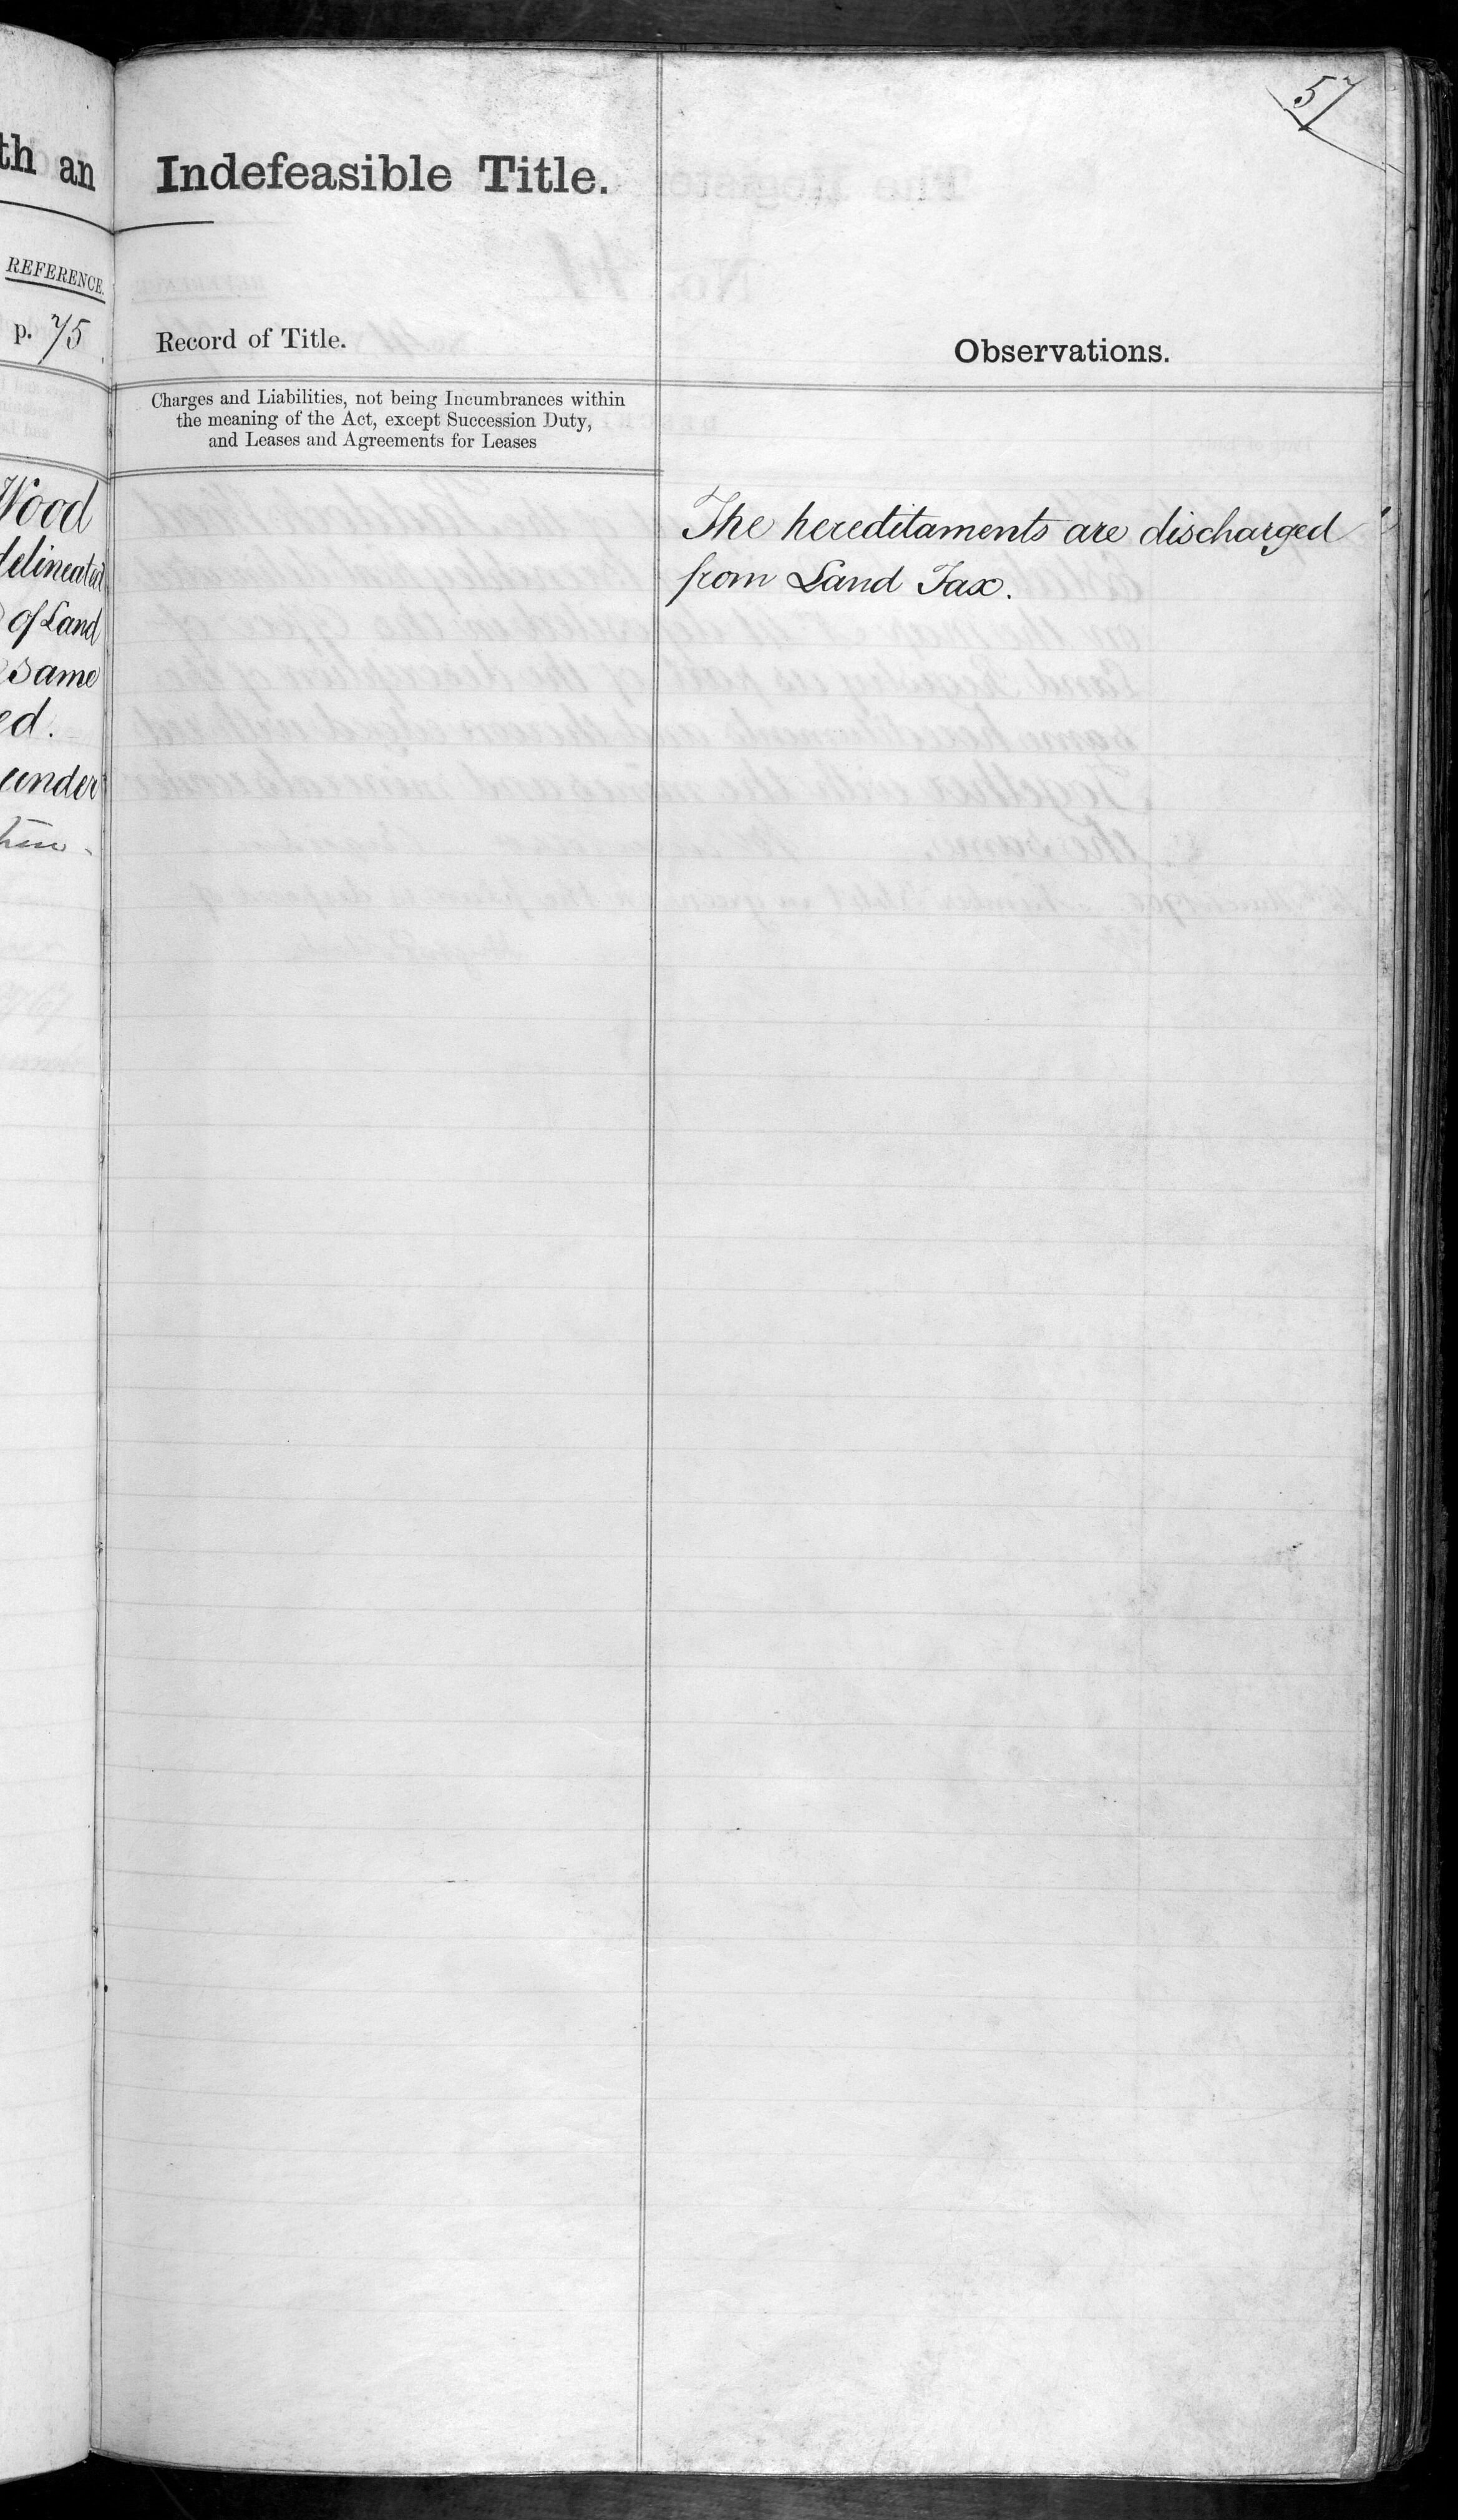 57
th an
Indefeasible Title.
REFERENCE.
p. 75
Record of Title.
Observations.
Charges and Liabilities, not being Incumbrances within
the meaning of the Act, except Succession Duty,
and Leases and Agreements for Leases
Wood
delineated
of Land
same
ed.
under
The hereditaments are discharged
from Land Tax.